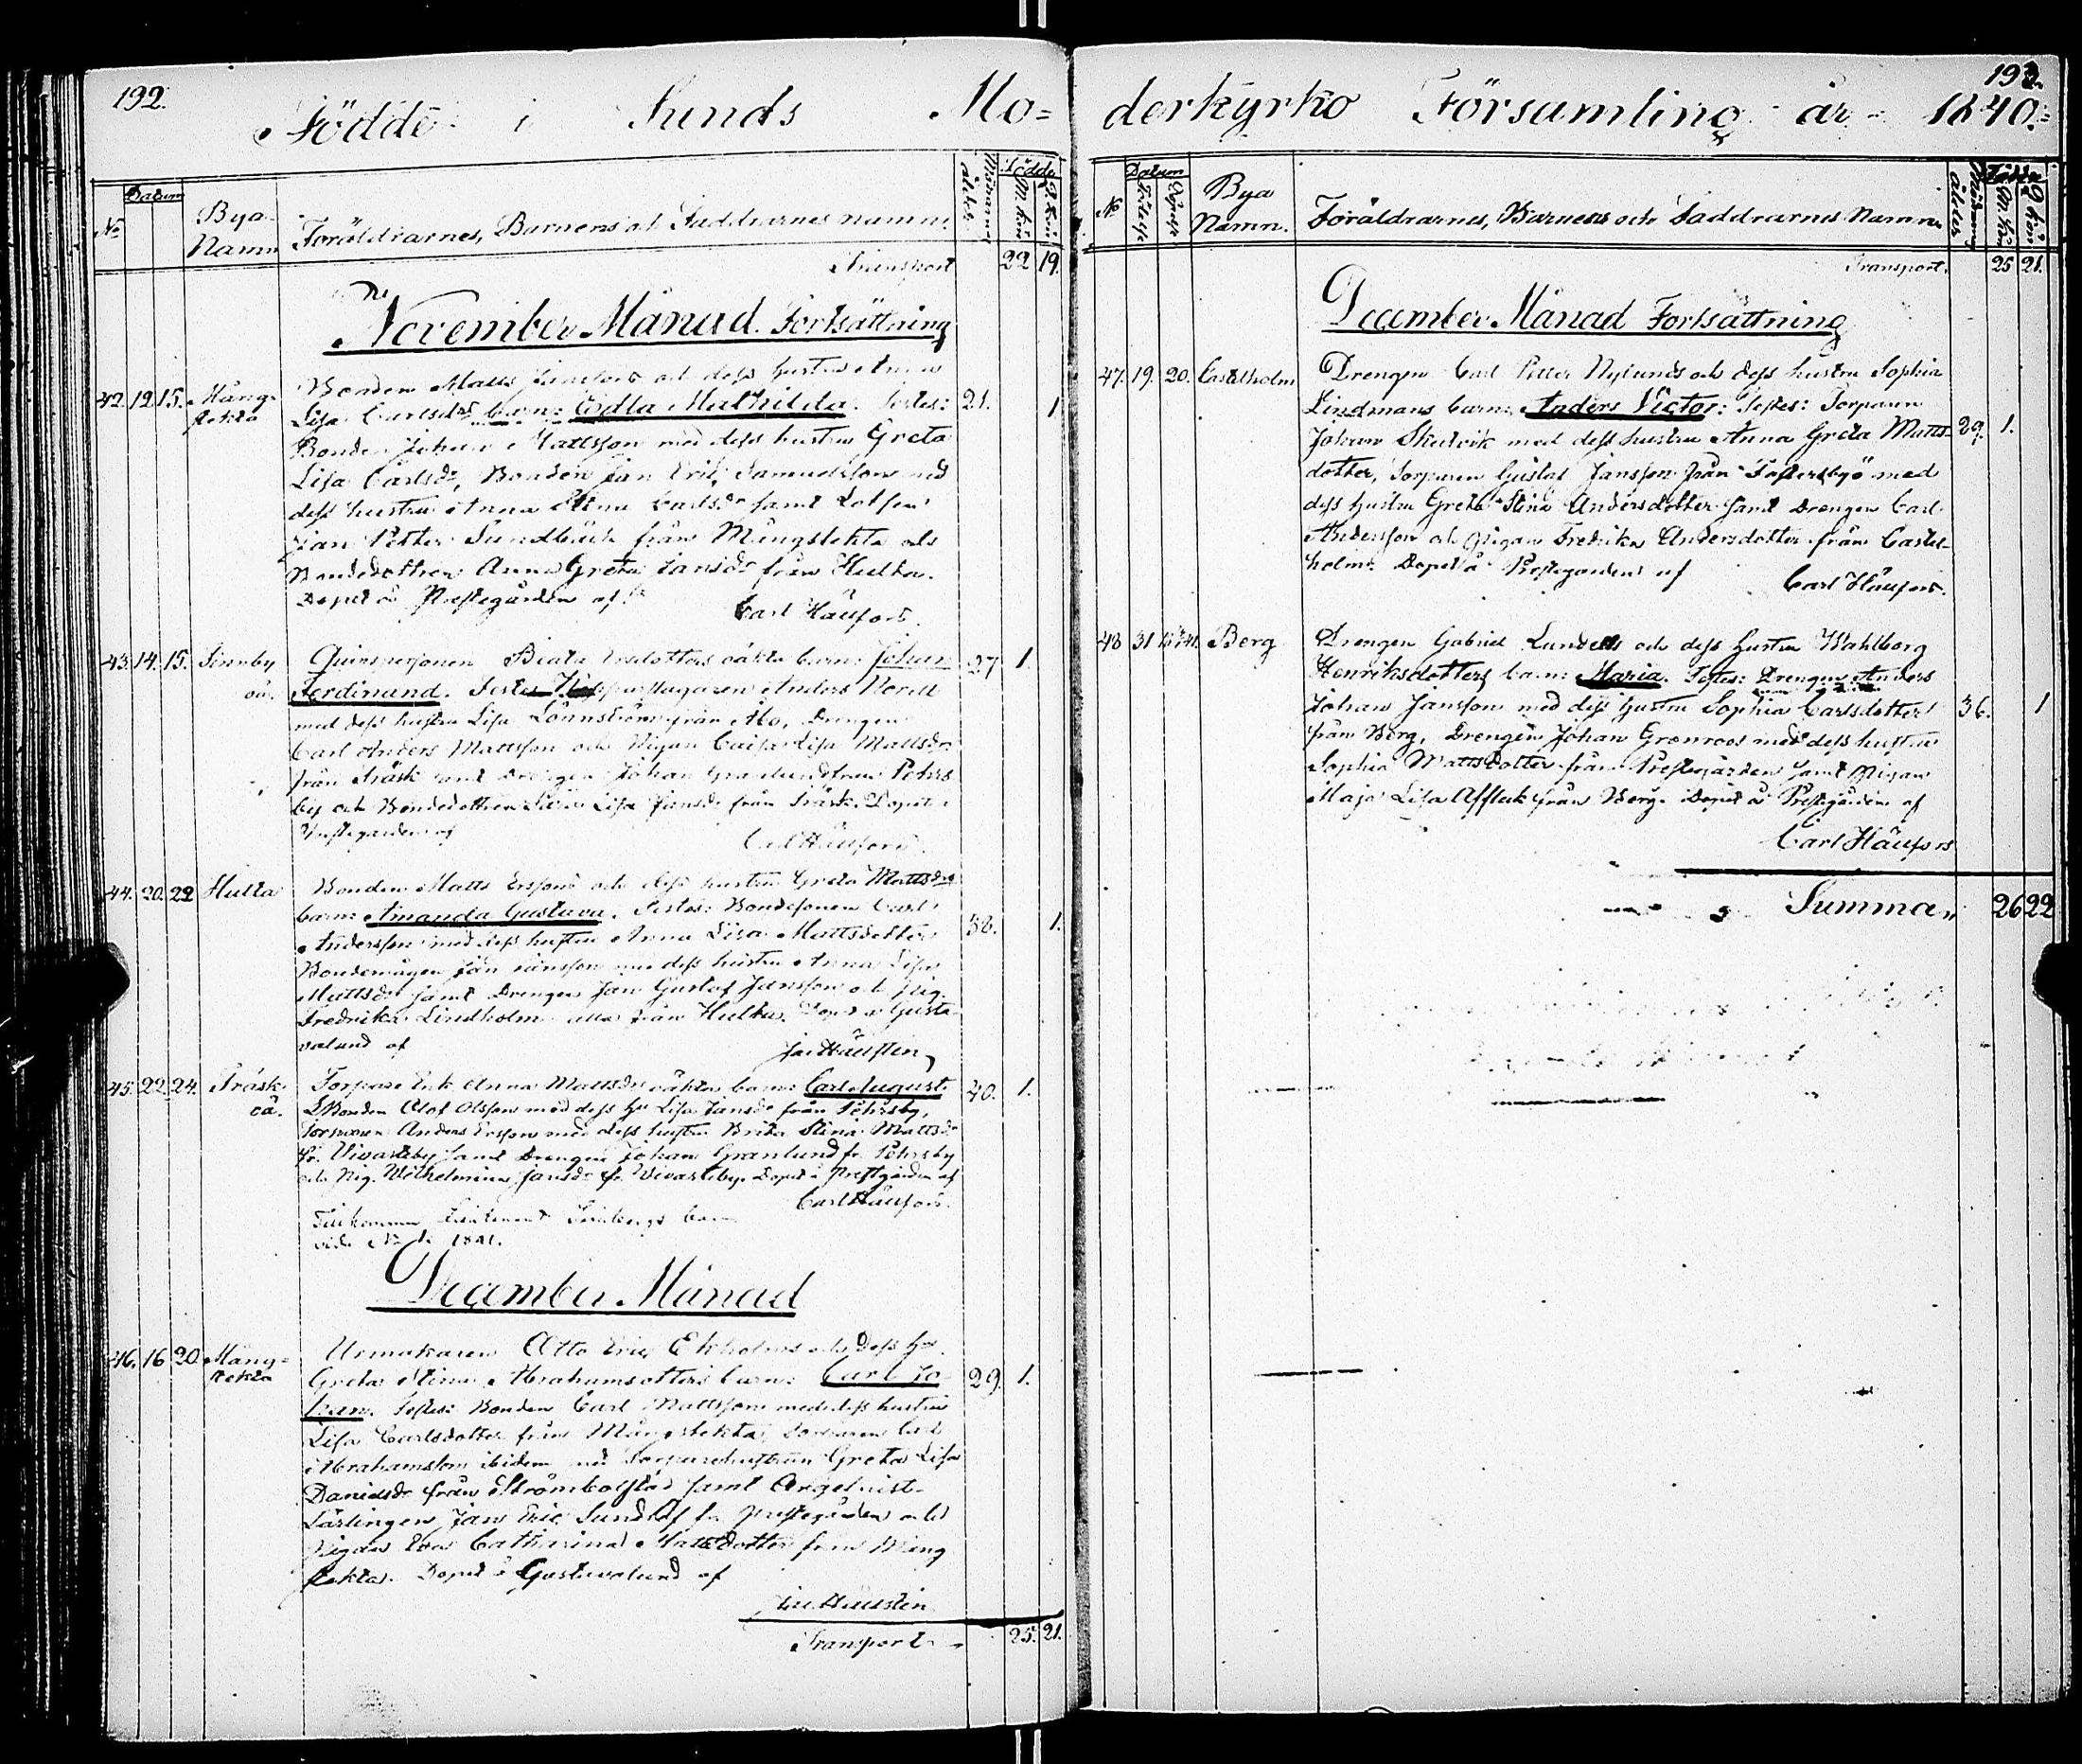 192.
Födde i Sunds Mo=
No
Datum
Bya
Namn
Föräldrarnes, Barnens och Faddrarnes namn.
Mödrarnes
ålder.
Födde
M. kön
Q. kön
Transport 22 19.
November Månad. Fortsättning
Bonden Matts Janssons och dess hustru Anna
42. 12 15. Mång- Lisa Carlsdrs barn: Edla Mathilda. Testes: 21. 1
stekta
Bonden Johan Mattsson med dess hustru Greta
Lisa Carlsdr, Bonden Jan Erik Samuelsson med
dess hustru Anna Stina Carlsdr samt Lotsen
Jan Petter Sundbäck från Mångstekta och
Bondedottren Anna Greta Jansdr från Hulta.
Döpet å Prestegården af
Carl Häufors.
43. 14. 15. Finnby Quinspersonen Beata Ersdotters oäkta barn: Johan 37 1.
oä. Ferdinand. Testes Anders Norell
med dess hustru Lisa Lönnström från Åbo, Drengen
Carl Anders Mattsson och Pigan Caisa Lisa Mattsdr
från Träsk samt Drengen Johan Granlund från Pehrs
by och Bondedottren Lisa Jansdr från Träsk. Döpet å
Prestegården af
Carl Häufors.
44. 20. 22 Hulta Bonden Matts Erssons och dess hustru Greta Mattsdrs
barn: Amanda Gustava. Testes: Bondesonen Carl 38. 1.
Andersson med dess hustru Anna Lisa Mattsdotter
Bondemågen Jan Jansson med dess hustru Anna Lisa
Mattsdr samt Drengen Jan Gustaf Jansson och Pig.
Fredrika Lindholm alla från Hulta. Döpt å Gusta-
valund af
Jac Häusten
45. 22. 24. Träsk Torpare Enk. Anna Mattsdrs oäkta barn: Carl August 40. 1.
oä. Bonden Olof Olsson med dess Hu Lisa Jansdr från Pehrsby,
Torparen Anders Ersson med dess hustru Brita Stina Mattsdr
fr. Vivasteby samt Drengen Johan Granlund fr. Pehrsby
och Pig. Wilhelmina Jansdr fr Vivasteby. Döpet å Prestgården af
Carl Häufors.
Lieutenant barn
vide No 1. 1841.
December Månad
46. 16 20. Mång- Urmakaren Otto Eric Ekholms och Dess Hu.
stekta Greta Stina Abrahamsdotters barn: Carl Jo 29. 1.
han. Testes: Bonden Carl Mattsson med dess hustru
Lisa Carlsdotter från Mångstekta, Torparen Carl
Abrahamsson ibidem med Torparehustrun Greta Lisa
Danielsdr från Strömbolstad samt Orgelnist-
Lärlingen Jan Eric Sundlöf fr Prestegården och
Pigan Eva Catharina Mattsdotter från Mång
stekta. Döpet å Gustavalund af
Jac Häusten
Transport 25. 21.
193.
derkyrko Församling år 1840.
No
Datum
Födelse
Döpelse
Bya
Namn.
Föräldrarnes, Barnens och Faddrarnes Namn.
Mödrarnes
ålder.
Födda
M. kön
Q kön
Transport. 25 21.
December Månad Fortsättning
47. 19. 20. Castelholm Drengen Carl Petter Nylunds och dess hustru Sophia
Lindmans barn: Anders Victor: Testes: Torparen
Johan Skutvik med dess hustru Anna Greta Matts- 29. 1.
dotter, Torparen Gustaf Jansson från med
dess hustru Greta Stina Andersdotter samt Drengen Carl
Andersson och Pigan Fredrika Andersdotter från Castel-
holm. Döpet å Prestegården af Carl Häufors.
48 31 Berg Drengen Gabriel Lundells och dess hustru Wahlborg
Henriksdotters barn: Maria. Testes: Drengen Anders
Johan Jansson med dess hustru Sophia Carlsdotter 36. 1
från Berg, Drengen Johan Grönroos med dess hustru
Sophia Mattsdotter från Prestegården samt Pigan
Maja Lisa Affleck från Berg. Döpet å Prestgården af
Carl Häufors
Summa 26 22